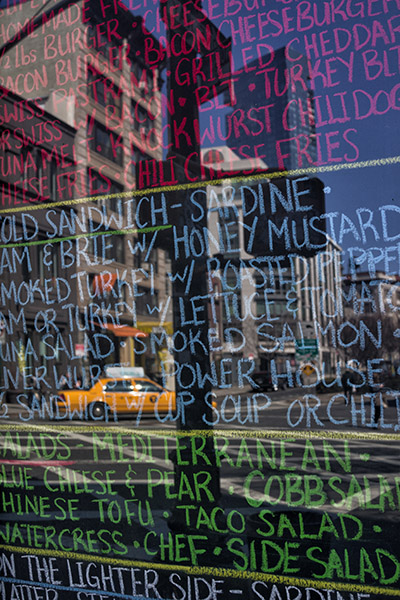 HOMEMADE CHEESEBURGER
2 lbs BURGER • BACON CHEESEBURGER
BACON BURGER • GRILLED CHEDDAR
SWISS PASTRAMI • BLT • TURKEY BLT
SWISS • KNOCKWURST CHILI DOG
TUNA ME CHILI CHEESE FRIES
CHEESE FRIES
OLD SANDWICH - SARDINE •
AM & BRIE W/ HONEY MUSTARD
SMOKED TURKEY W/ ROASTED PEPPER
AM OR TURKEY W/ LETTUCE & TOMAT
TUNA SALAD • SMOKED SALMON •
POWER HOUSE •
1/2 SANDWICH W/ CUP SOUP OR CHILI
SALADS - MEDITERRANEAN •
BLUE CHEESE & PEAR • COBB SALA
CHINESE TOFU • TACO SALAD •
WATERCRESS • CHEF • SIDE SALAD
ON THE LIGHTER SIDE - SARDINE